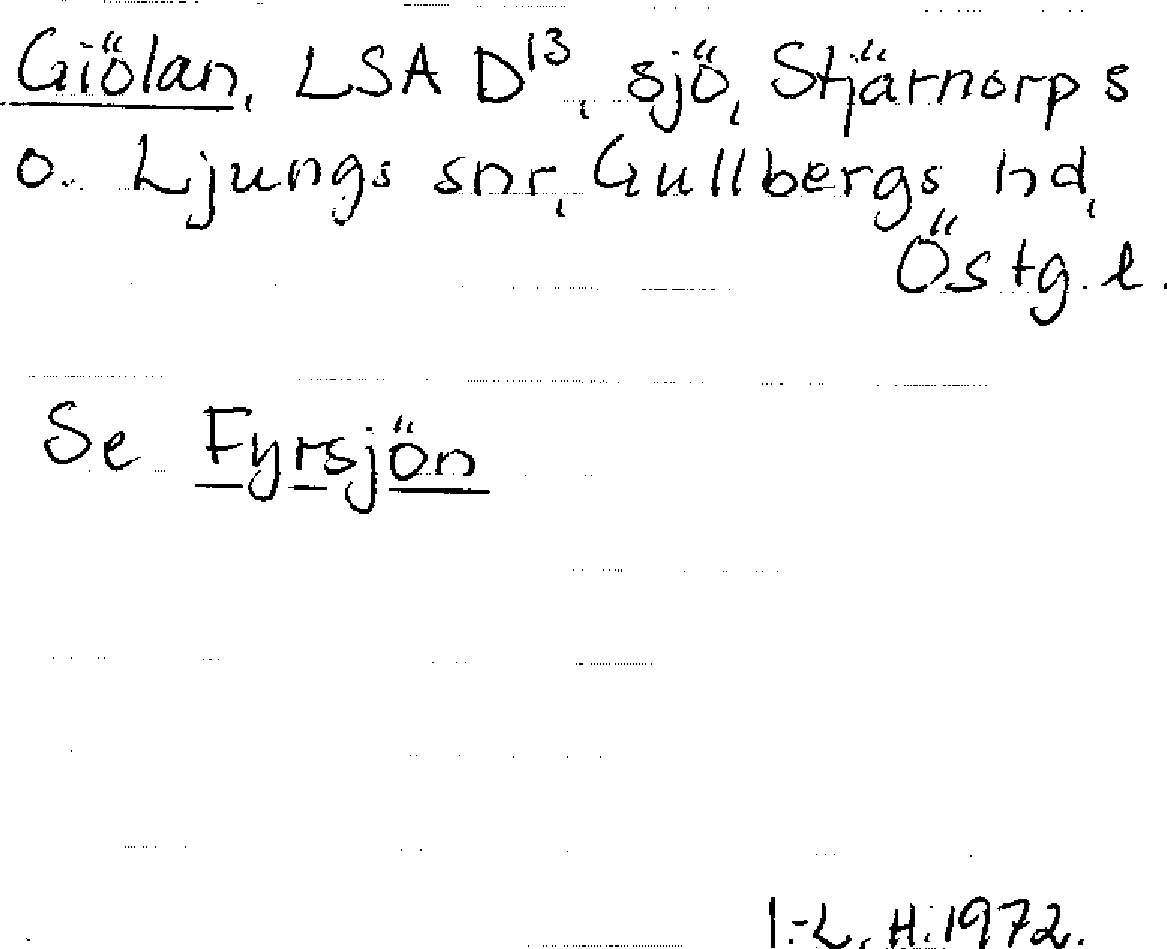 Giölan, LSA D¹³, sjö, Stjärnorps
o. Ljungs snr, Gullbergs hd,
Östg. l.
Se Fyrsjön
I.-L. H. 1972.